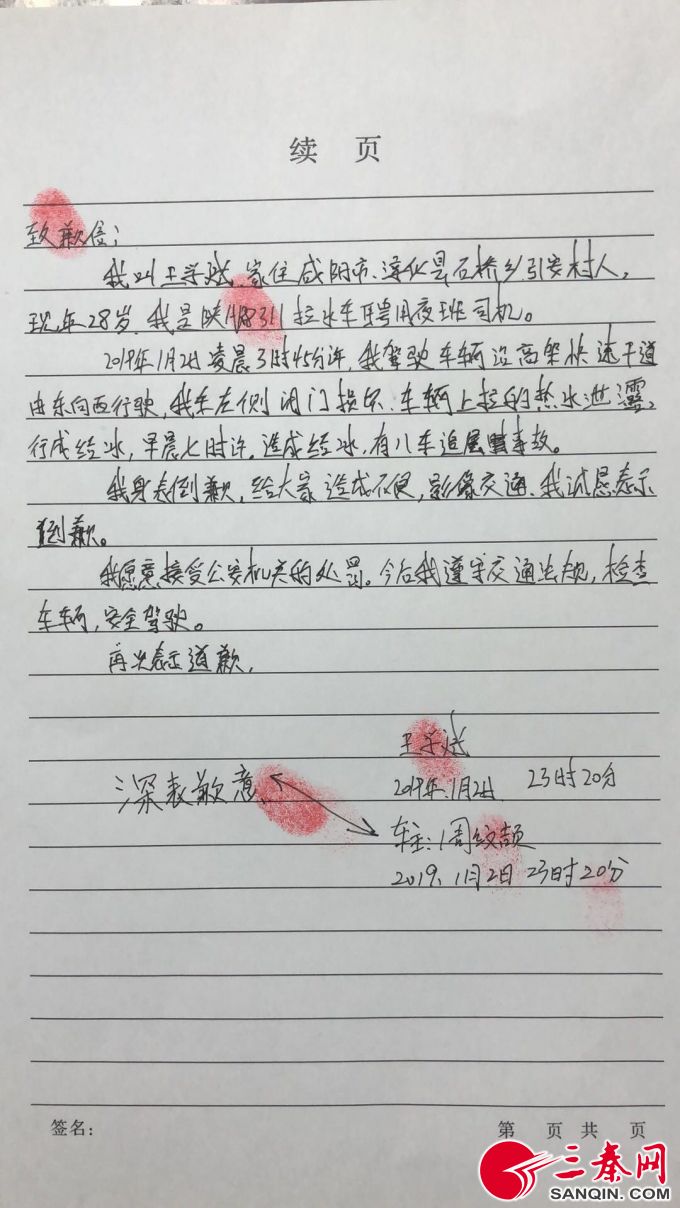 续 页
致歉信：
我叫王学斌、家住咸阳市、淳化县石桥乡引安村人，
现年28岁、我是陕A18311拉水车聘用夜班司机。
2019年1月2日凌晨3时45分许，我驾驶车辆沿高架快速干道
由东向西行驶，我车左侧闭门损坏、车辆上拉的热水泄露，
行成结冰，早晨七时许，造成结冰，有八车追尾事故。
我身表倒歉，给大家造成不便，影像交通、我诚恳表示
倒歉。
我愿意接受公安机关的处罚。今后我遵守交通法规，检查
车辆，安全驾驶。
再次表示道歉，
王学斌
2019年1月2日 23时20分
深表歉意
车主：周纹颉
2019、1月2日 23时20分
签名：
第 页 共 页
三秦网
SANQIN.COM